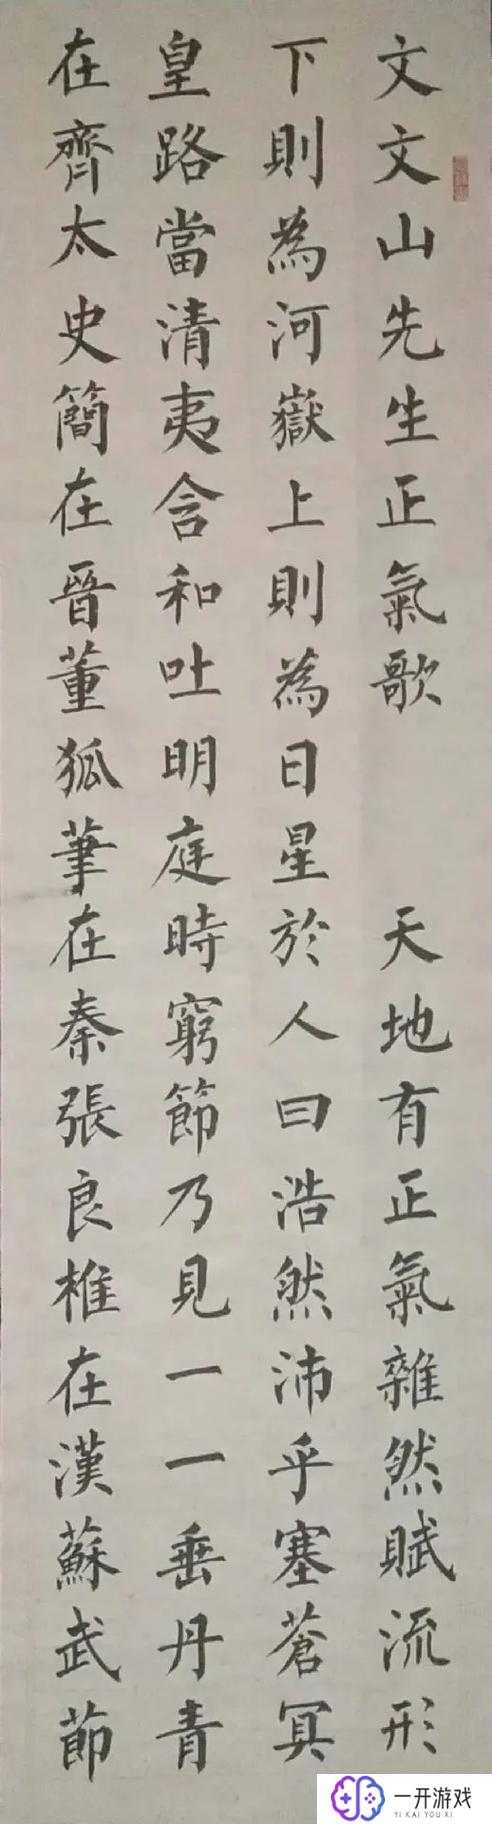 文文山先生正氣歌 天地有正氣雜然賦流形
下則為河嶽上則為日星於人曰浩然沛乎塞蒼冥
皇路當清夷含和吐明庭時窮節乃見一一垂丹青
在齊太史簡在晉董狐筆在秦張良椎在漢蘇武節
一开游戏
YI KAI YOU XI